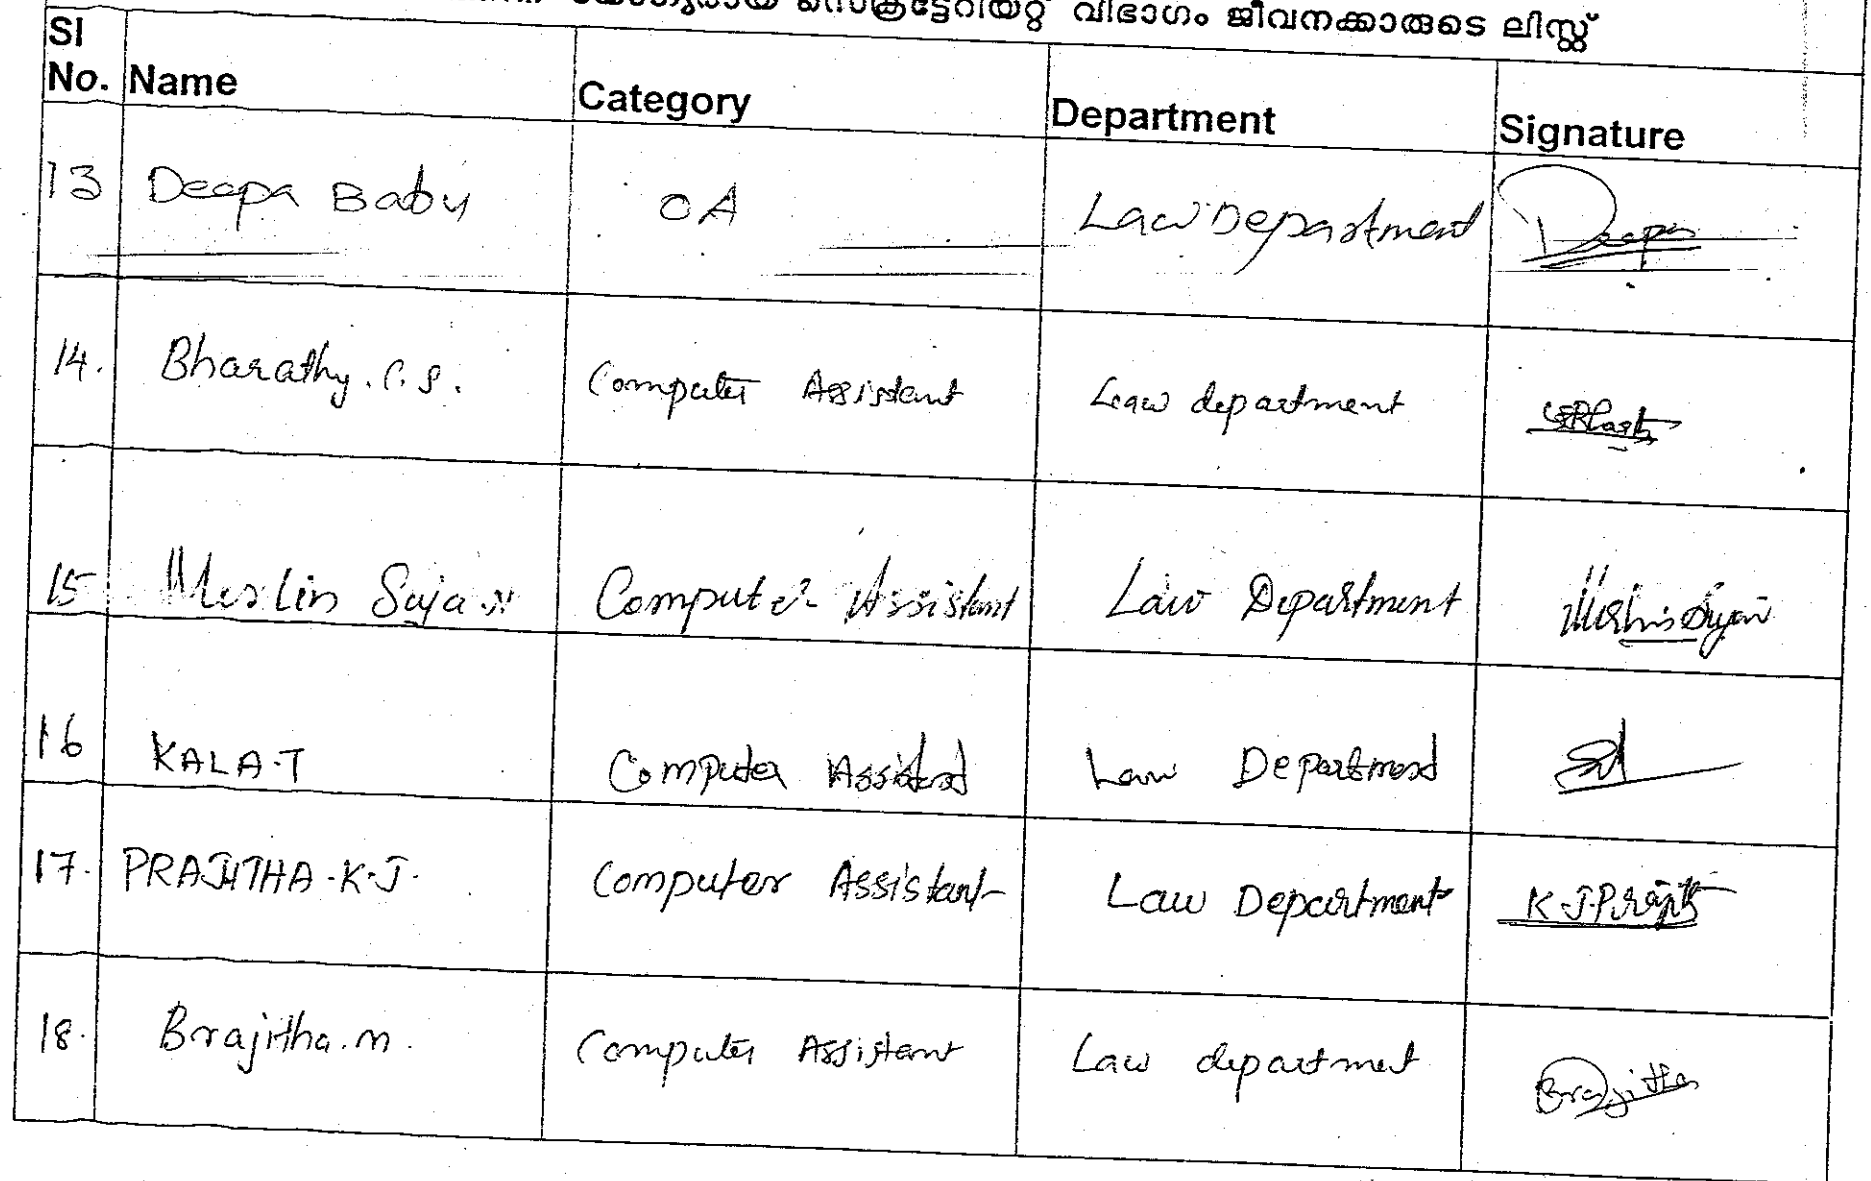 യോഗ്യരായ സെക്രട്ടേറിയറ്റ് വിഭാഗം ജീവനക്കാരുടെ ലിസ്റ്റ്
Sl No. Name Category Department Signature
13 Deepa Baby OA Law Department Deepa
14. Bharathy. C. S. Computer Assistant Law department
15 Merlin Suja N Computer Assistant Law Department
16 KALA.T Computer Assistant Law Department
17. PRAJITHA.K.J. Computer Assistant Law Department K.J.Prajitha
18. Brajitha.m. Computer Assistant Law department Brajitha